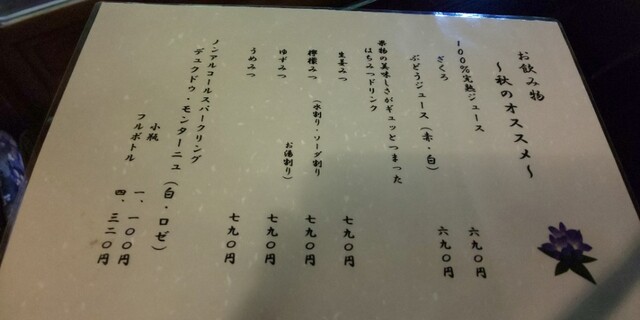 お飲み物
～秋のオススメ～
１００％完熟ジュース
ざくろ 六九〇円
ぶどうジュース（赤・白） 六九〇円
果物の美味しさがギュッとつまった
はちみつドリンク
生姜みつ 七九〇円
檸檬みつ （水割り・ソーダ割り 七九〇円
ゆずみつ お湯割り） 七九〇円
うめみつ 七九〇円
ノンアルコールスパークリング
デュクドゥ・モンターニュ（白・ロゼ）
小瓶 一、一〇〇円
フルボトル 四、三二〇円